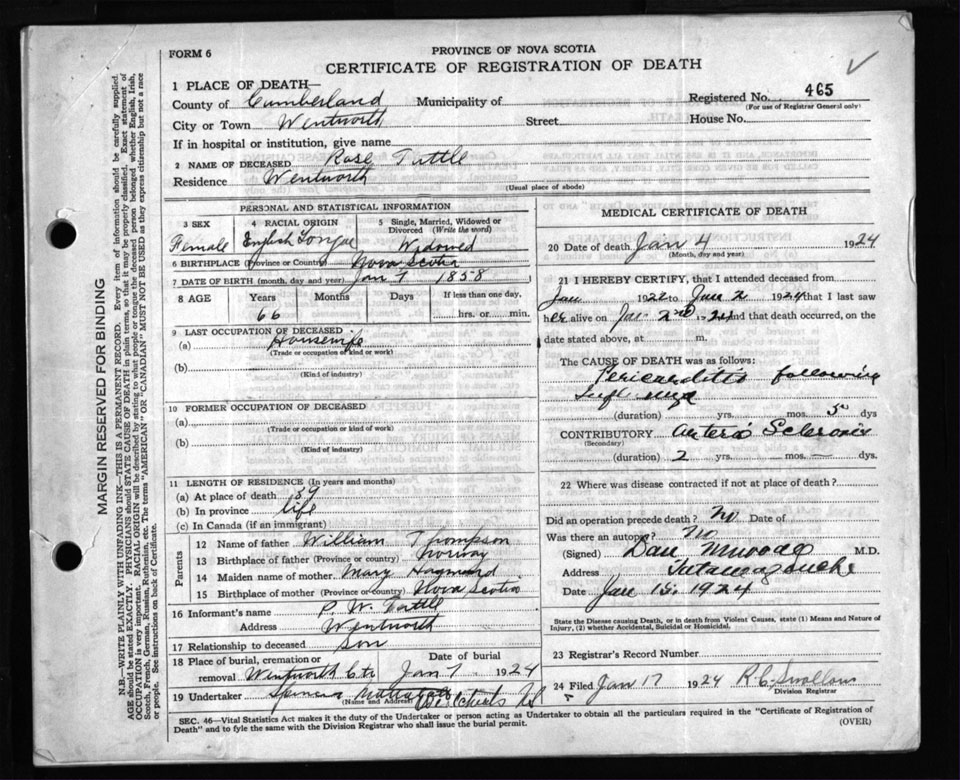 FORM 6
PROVINCE OF NOVA SCOTIA
CERTIFICATE OF REGISTRATION OF DEATH
1 PLACE OF DEATH—
Registered No. 465
(For use of Registrar General only)
County of Cumberland Municipality of
City or Town Wentworth Street House No.
If in hospital or institution, give name
2 NAME OF DECEASED Rose Tuttle
Residence Wentworth
(Usual place of abode)
PERSONAL AND STATISTICAL INFORMATION
3 SEX Female
4 RACIAL ORIGIN English Tongue
5 Single, Married, Widowed or Divorced (Write the word) Widowed
6 BIRTHPLACE (Province or Country) Nova Scotia
7 DATE OF BIRTH (month, day and year) Jan 7 1858
8 AGE Years Months Days If less than one day,
66 hrs. or min.
9 LAST OCCUPATION OF DECEASED
(a) Housewife
(Trade or occupation of kind or work)
(b)
(Kind of industry)
10 FORMER OCCUPATION OF DECEASED
(a)
(Trade or occupation or kind of work)
(b)
(Kind of industry)
11 LENGTH OF RESIDENCE (In years and months)
(a) At place of death
(b) In province life
(c) In Canada (if an immigrant)
Parents
12 Name of father William Thompson
13 Birthplace of father (Province or country) Norway
14 Maiden name of mother Mary Hayward
15 Birthplace of mother (Province or country) Nova Scotia
16 Informant's name P. W. Tuttle
Address Wentworth
17 Relationship to deceased Son
18 Place of burial, cremation or removal Wentworth Ctr Date of burial Jan 7 1924
19 Undertaker
(Name and Address)
MEDICAL CERTIFICATE OF DEATH
20 Date of death Jan 4 1924
(Month, day and year)
21 I HEREBY CERTIFY, that I attended deceased from
Jan 1922 to Jan 2 1924 that I last saw
her alive on Jan 2nd 24 and that death occurred, on the
date stated above, at m.
The CAUSE OF DEATH was as follows:
Pericarditis following
(duration) yrs. mos. 5 dys
CONTRIBUTORY Arterio Sclerosis
(Secondary)
(duration) 2 yrs. — mos. — dys.
22 Where was disease contracted if not at place of death?
Did an operation precede death? No Date of
Was there an autopsy? No
(Signed) Dan Murray M.D.
Address Tatamagouche
Date Jan 15. 1924
State the Disease causing Death, or in death from Violent Causes, state (1) Means and Nature of
Injury, (2) whether Accidental, Suicidal or Homicidal.
23 Registrar's Record Number
24 Filed Jan 17 1924 R. C. Swallow
Division Registrar
SEC. 46—Vital Statistics Act makes it the duty of the Undertaker or person acting as Undertaker to obtain all the particulars required in the "Certificate of Registration of
Death" and to fyle the same with the Division Registrar who shall issue the burial permit.
(OVER)
MARGIN RESERVED FOR BINDING
N.B.—WRITE PLAINLY WITH UNFADING INK—THIS IS A PERMANENT RECORD. Every item of information should be carefully supplied.
AGE should be stated EXACTLY. PHYSICIANS should STATE CAUSE OF DEATH in plain terms, so that it may be properly classified. Exact statement of
OCCUPATION is very important. RACIAL ORIGIN will be described by stating to what people or tongue the deceased person belonged whether English, Irish,
Scotch, French, German, Russian, Ruthenian, etc. The terms "AMERICAN" OR "CANADIAN" MUST NOT BE USED as they express citizenship but not a race
or people. See instructions on back of Certificate.